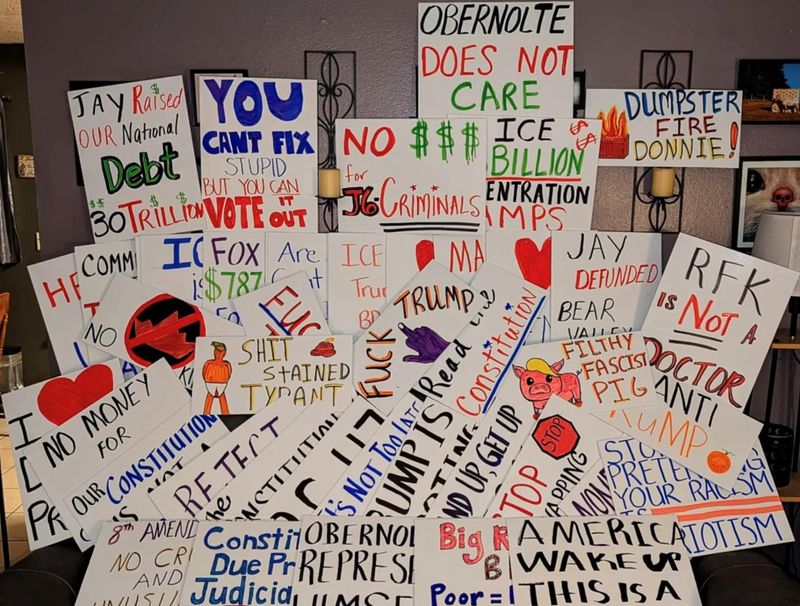 OBERNOLTE
DOES NOT
CARE
JAY Raised
OUR National
Debt
$30 TRILLION
YOU
CANT FIX
STUPID
BUT YOU CAN
VOTE IT
OUT
NO $$$
for
J6 CRIMINALS
ICE $
BILLION
ENTRATION
MPS
DUMPSTER
FIRE
DONNIE!
HE
COMM
IC
FOX
$787
Are
ICE
Tru
MA
JAY
DEFUNDED
BEAR
VALLEY
RFK
IS NOT A
DOCTOR
NO
FUC
FUCK TRUMP
Read the
Constitution
SHIT
STAINED
TYRANT
FILTHY
FASCIST
PIG
ANTI
TRUMP
I
NO MONEY
FOR
OUR CONSTITUTION
RETECT
the
CONSTITUTION
It's Not Too Late
UMP IS
ND UP, GET UP
STOP
STOP
APPING
STOP
PRETENDING
YOUR RACISM
IS
RIOTISM
8th AMEND
NO CR
AND
UNUSU
Constit
Due Pr
Judicia
OBERNOL
REPRESE
HIMSE
Big
B
Poor =
AMERICA
WAKE UP
THIS IS A